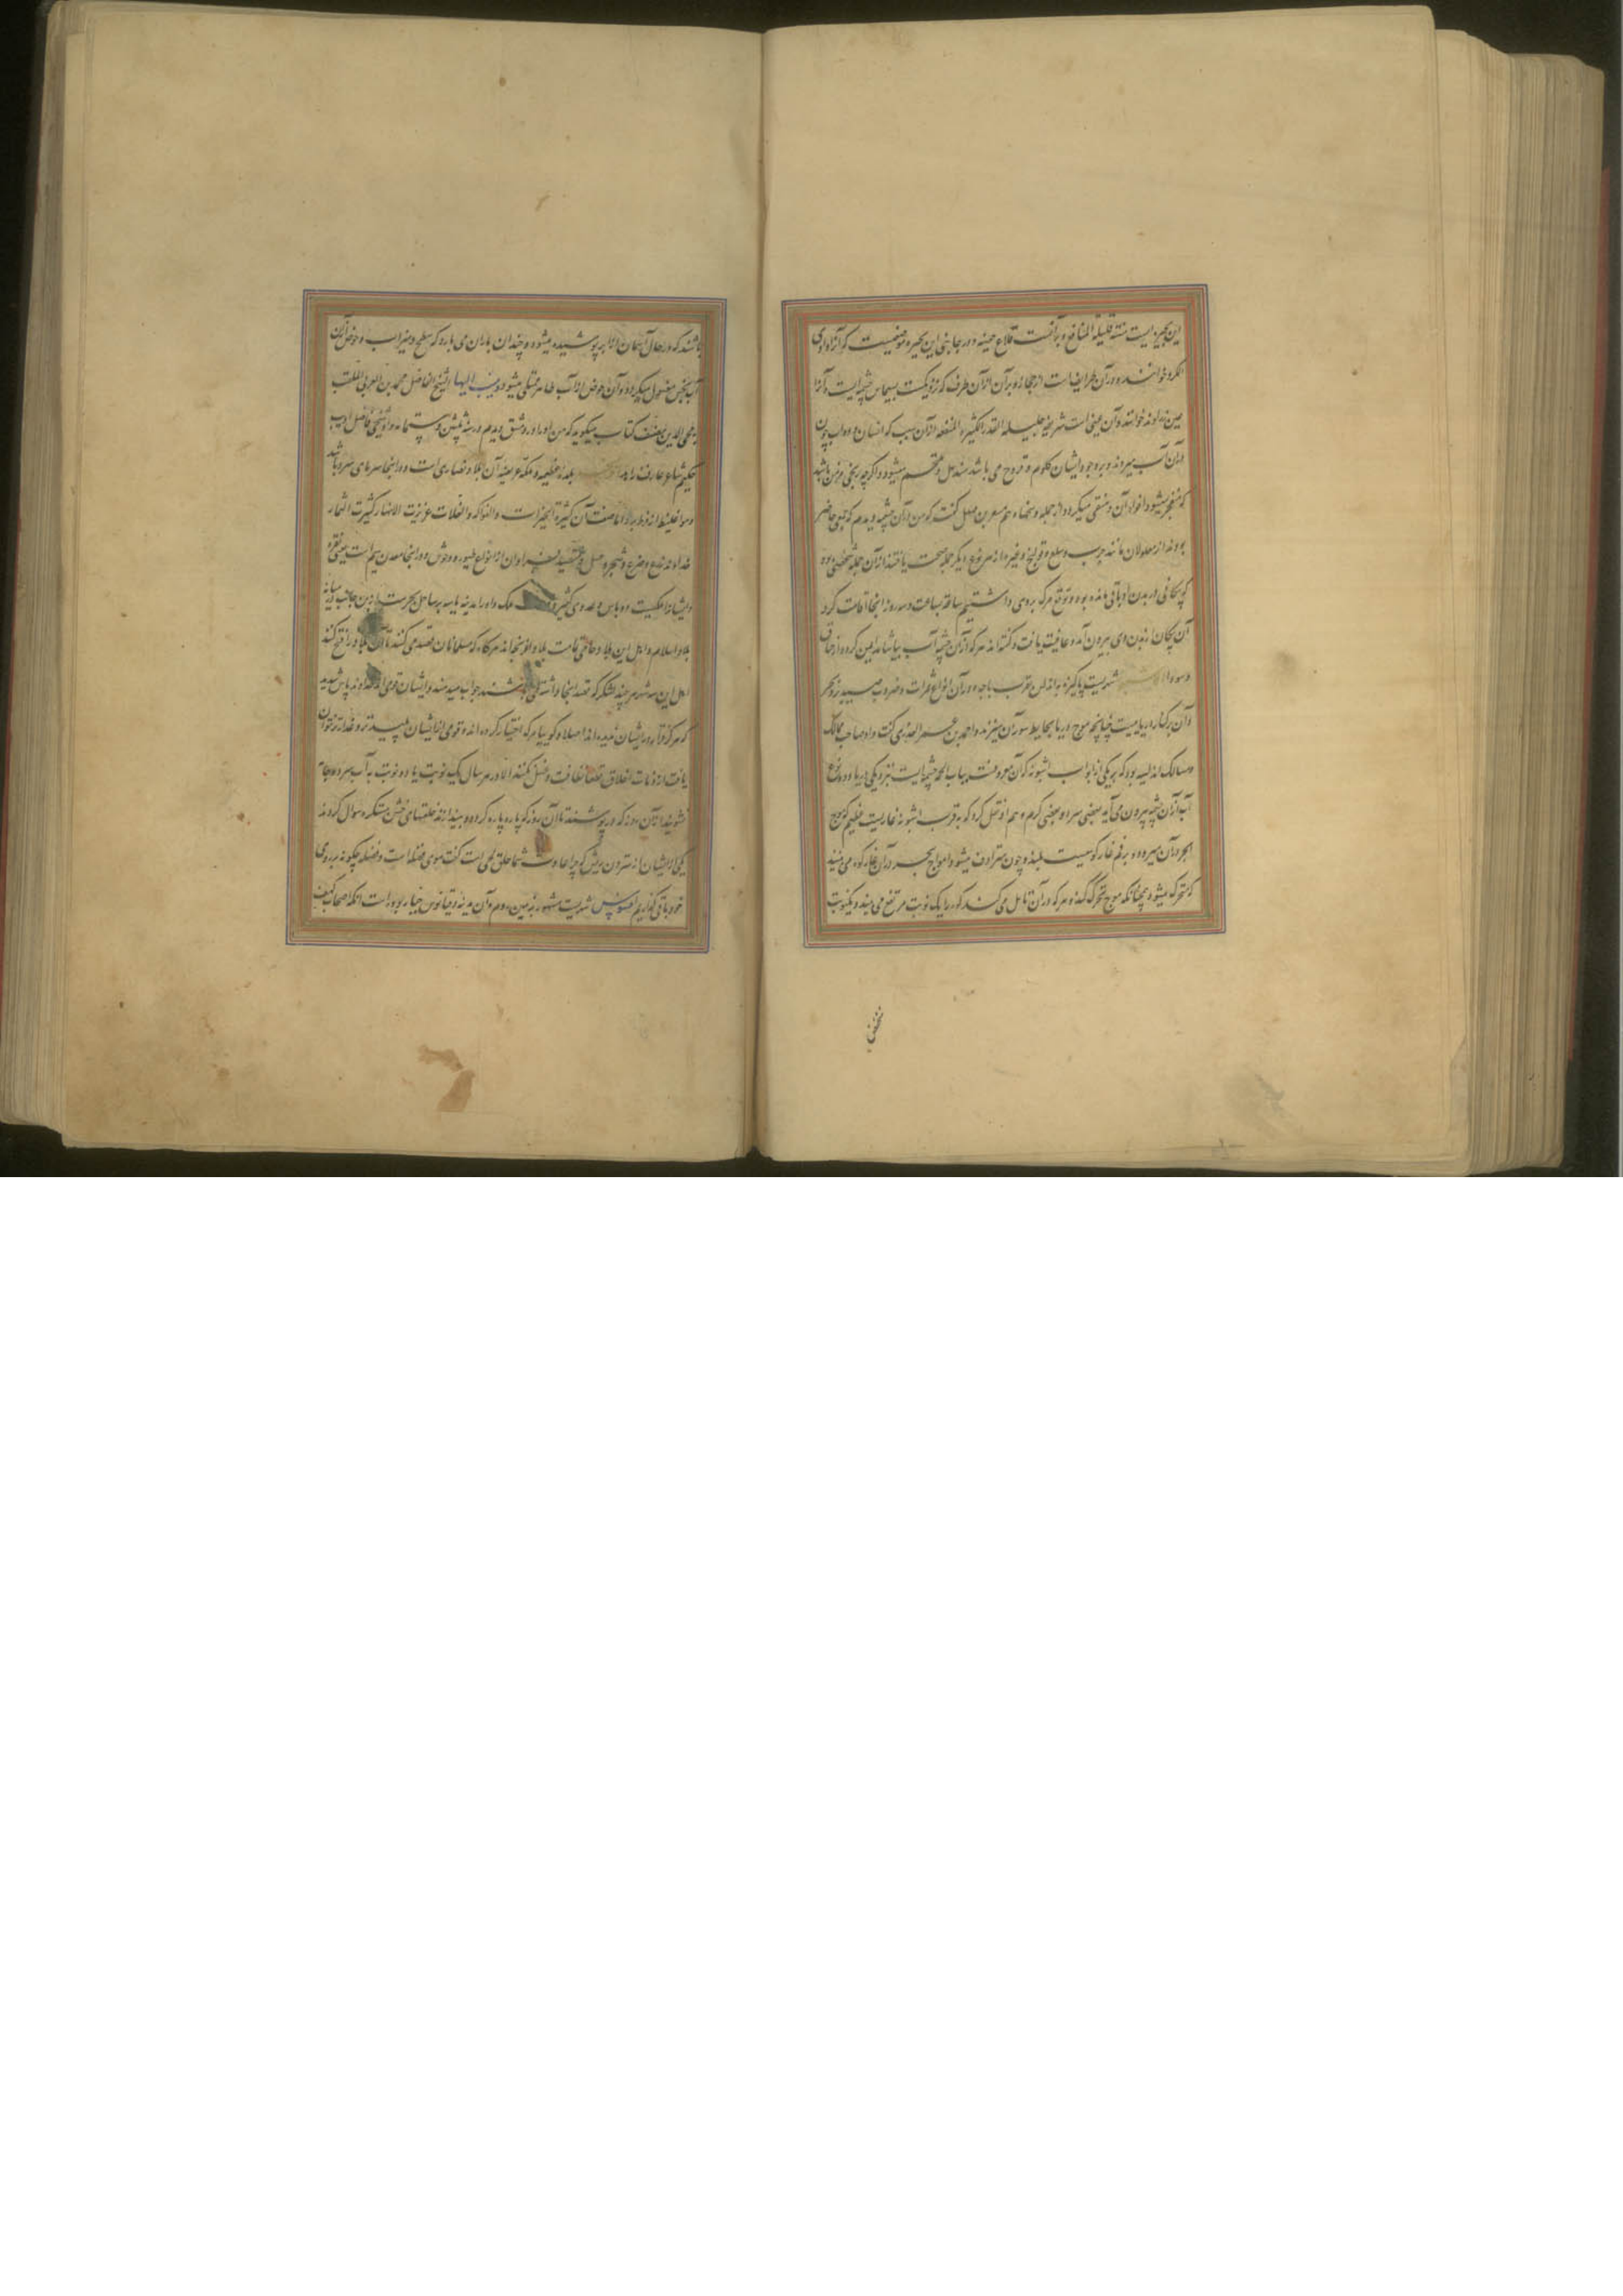 این بحیره ایست منتنه قلیلة المنافع و برآنست قلاع حصینه و در جانبی این بحیره موضعیست که آنرا وادی
الکرد خوانند و در آن طرایف است از حجاز و بر آن از آن طرف که نزدیکست بسیماس چشمه ایست و آنرا
عین زراوند خوانند و آن عینی است شریفه جلیلة القدر الکثیره المنفعه از آن سبب که انسان و دواب چون
در آن آب میروند و بر وجود ایشان کلوم و قروح می باشد مندمل و ملتحم میشود و اگر چه ریحی مزمن باشد
که منفجر میشود افواه آن و منقی میگردد از جمله وسخها و هم مسعر بن مهلهل گفت که من از آن چشمه دیدم که جمعی حاضر
بودند از معلولان مانند جرب و سلع و قولنج و غیره از هر نوع دیگر جمله صحت یافتند از آن جمله شخصی بود
که پیکانی در بدن او باقی مانده بود و توقع مرگ بروی داشتیم ساعة بساعت و سه روز انجا اقامت کرد
آن پیکان از بدن وی بیرون آمد و عافیت یافت و گفته اند هر که از آن چشمه آب بیاشامد ایمن گردد از خناق
و سودا شهریست پاکیزه باندلس بقرب باجه و در آن انواع ثمرات و ضروب صید بر و بحر
و آن بر کنار دریا میست چنانچه موج دریا بحایط سور آن میزند و احمد بن عمر العذری گفت و او صاحب ممالک
و مسالک اندلسیه بود که بر یکی از ابواب اشبونه که آن معروفست بباب الحمه چشمه ایست بنزدیکی دریا و دو نوع
آب از آن چشمه بیرون می آید بعضی سرد و بعضی گرم و هم او نقل کرد که بقرب اشبونه غاریست عظیم که موج
البحر در آن میرود و بر فم غار کوهیست بلند و چون مترادف میشود امواج بحر در آن غار کوه می بیند
که متحرک میشود همچنانکه موج متحرک گذرد هر که در آن تامل می کند کوه را یک نوبت مرتفع می بیند و یکنوبت
منخفض
باشند که در حال آسمان از ابر پوشیده میشود و چندان باران می بارد که سطح و میزاب و حوض از آن
آب نجس مغسول میگردد و آن حوض از آب طاهر ممتلی میشود و ینسب الیها الشیخ الفاضل محمد بن العربی الملقب
به محی الدین مصنف کتاب میگوید که من او را در دمشق دیدم در سنه ثلثین و ستمائه و او شیخی فاضل ادیب
حکیم شاعر عارف زاهد بلده عظیمه و مملکه عریضه آن بلاد نصاری است و در انجا سرمای سرد باشد
و هوا غلیظ از فرط برد اما صفت آن کثیرة الخیرات و الفواکه و الغلات غزیرت الانهار کثیرت الثمار
خداوند زرع و ضرع و شجر و عسل و صید فراوان از انواع طیور و وحوش و در انجا معدن سیم است یعنی نقره
و ایشان را ملکیست و باس و عددی کثیر ملک و او را مدینه یا سه بر ساحل بحر است ازین جانب در میانه
بلاد اسلام و اهل این بلاد حامی قامت بلاد افرنجه اند هر گاه که مسلمانان قصد می کنند تا آن بلاد را فتح کنند
اهل این سه شهر هر چند لشکر که قصد انجا داشته باشند جواب میدهند و ایشان قومی اند خداوند باس شدید
که هرگز فرار در ایشان ندیده اند اصلا و گوییا مرگ اختیار کرده اند و قومی از ایشان پلیدتر و غدارتر نتوان
یافت از دنائت اخلاق قطعا نظافت و غسل نکنند الا در هر سال یک نوبت یا دو نوبت به آب سرد و جامه
نشویند از آن روز که در پوشند تا آن روز که پاره پاره گردد و بیندازند خلقتهای خشن مستنکر و سوال کردند
یکی از ایشان از ستردن ریش که چرا عادت شما حلق لحی است گفت موی فضله است و فضله چگونه بر روی
خود باقی گذاریم افسوس شهریست مشهور بزمین روم و آن مدینه دقیانوس جبار بوده است انکه اصحاب کهف